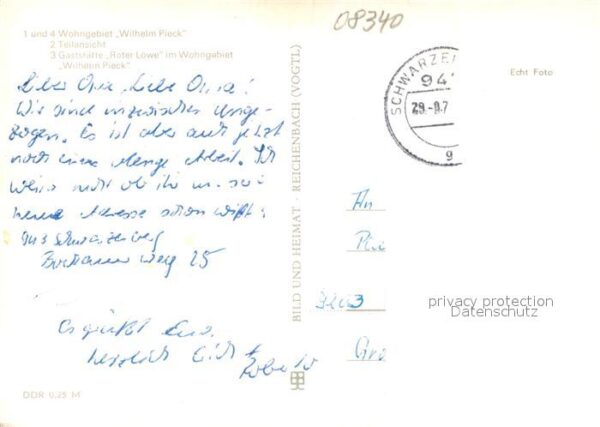 08340
1 und 4 Wohngebiet „Wilhelm Pieck"
2 Teilansicht
3 Gaststätte „Roter Löwe" im Wohngebiet
„Wilhelm Pieck"
Echt Foto
SCHWARZE
94
29.-8.7
9
Liebe Oma, Liebe Oma!
Wir sind inzwischen umge-
zogen. Es ist aber auch jetzt
noch eine Menge Arbeit. Ich
weiß nicht ob ihr
Adresse schon wißt:
943 Schwarzenberg
Weg 25
Es grüßt Euch
herzlich
BILD UND HEIMAT · REICHENBACH (VOGTL)
An
privacy protection
Datenschutz
DDR 0,25 M